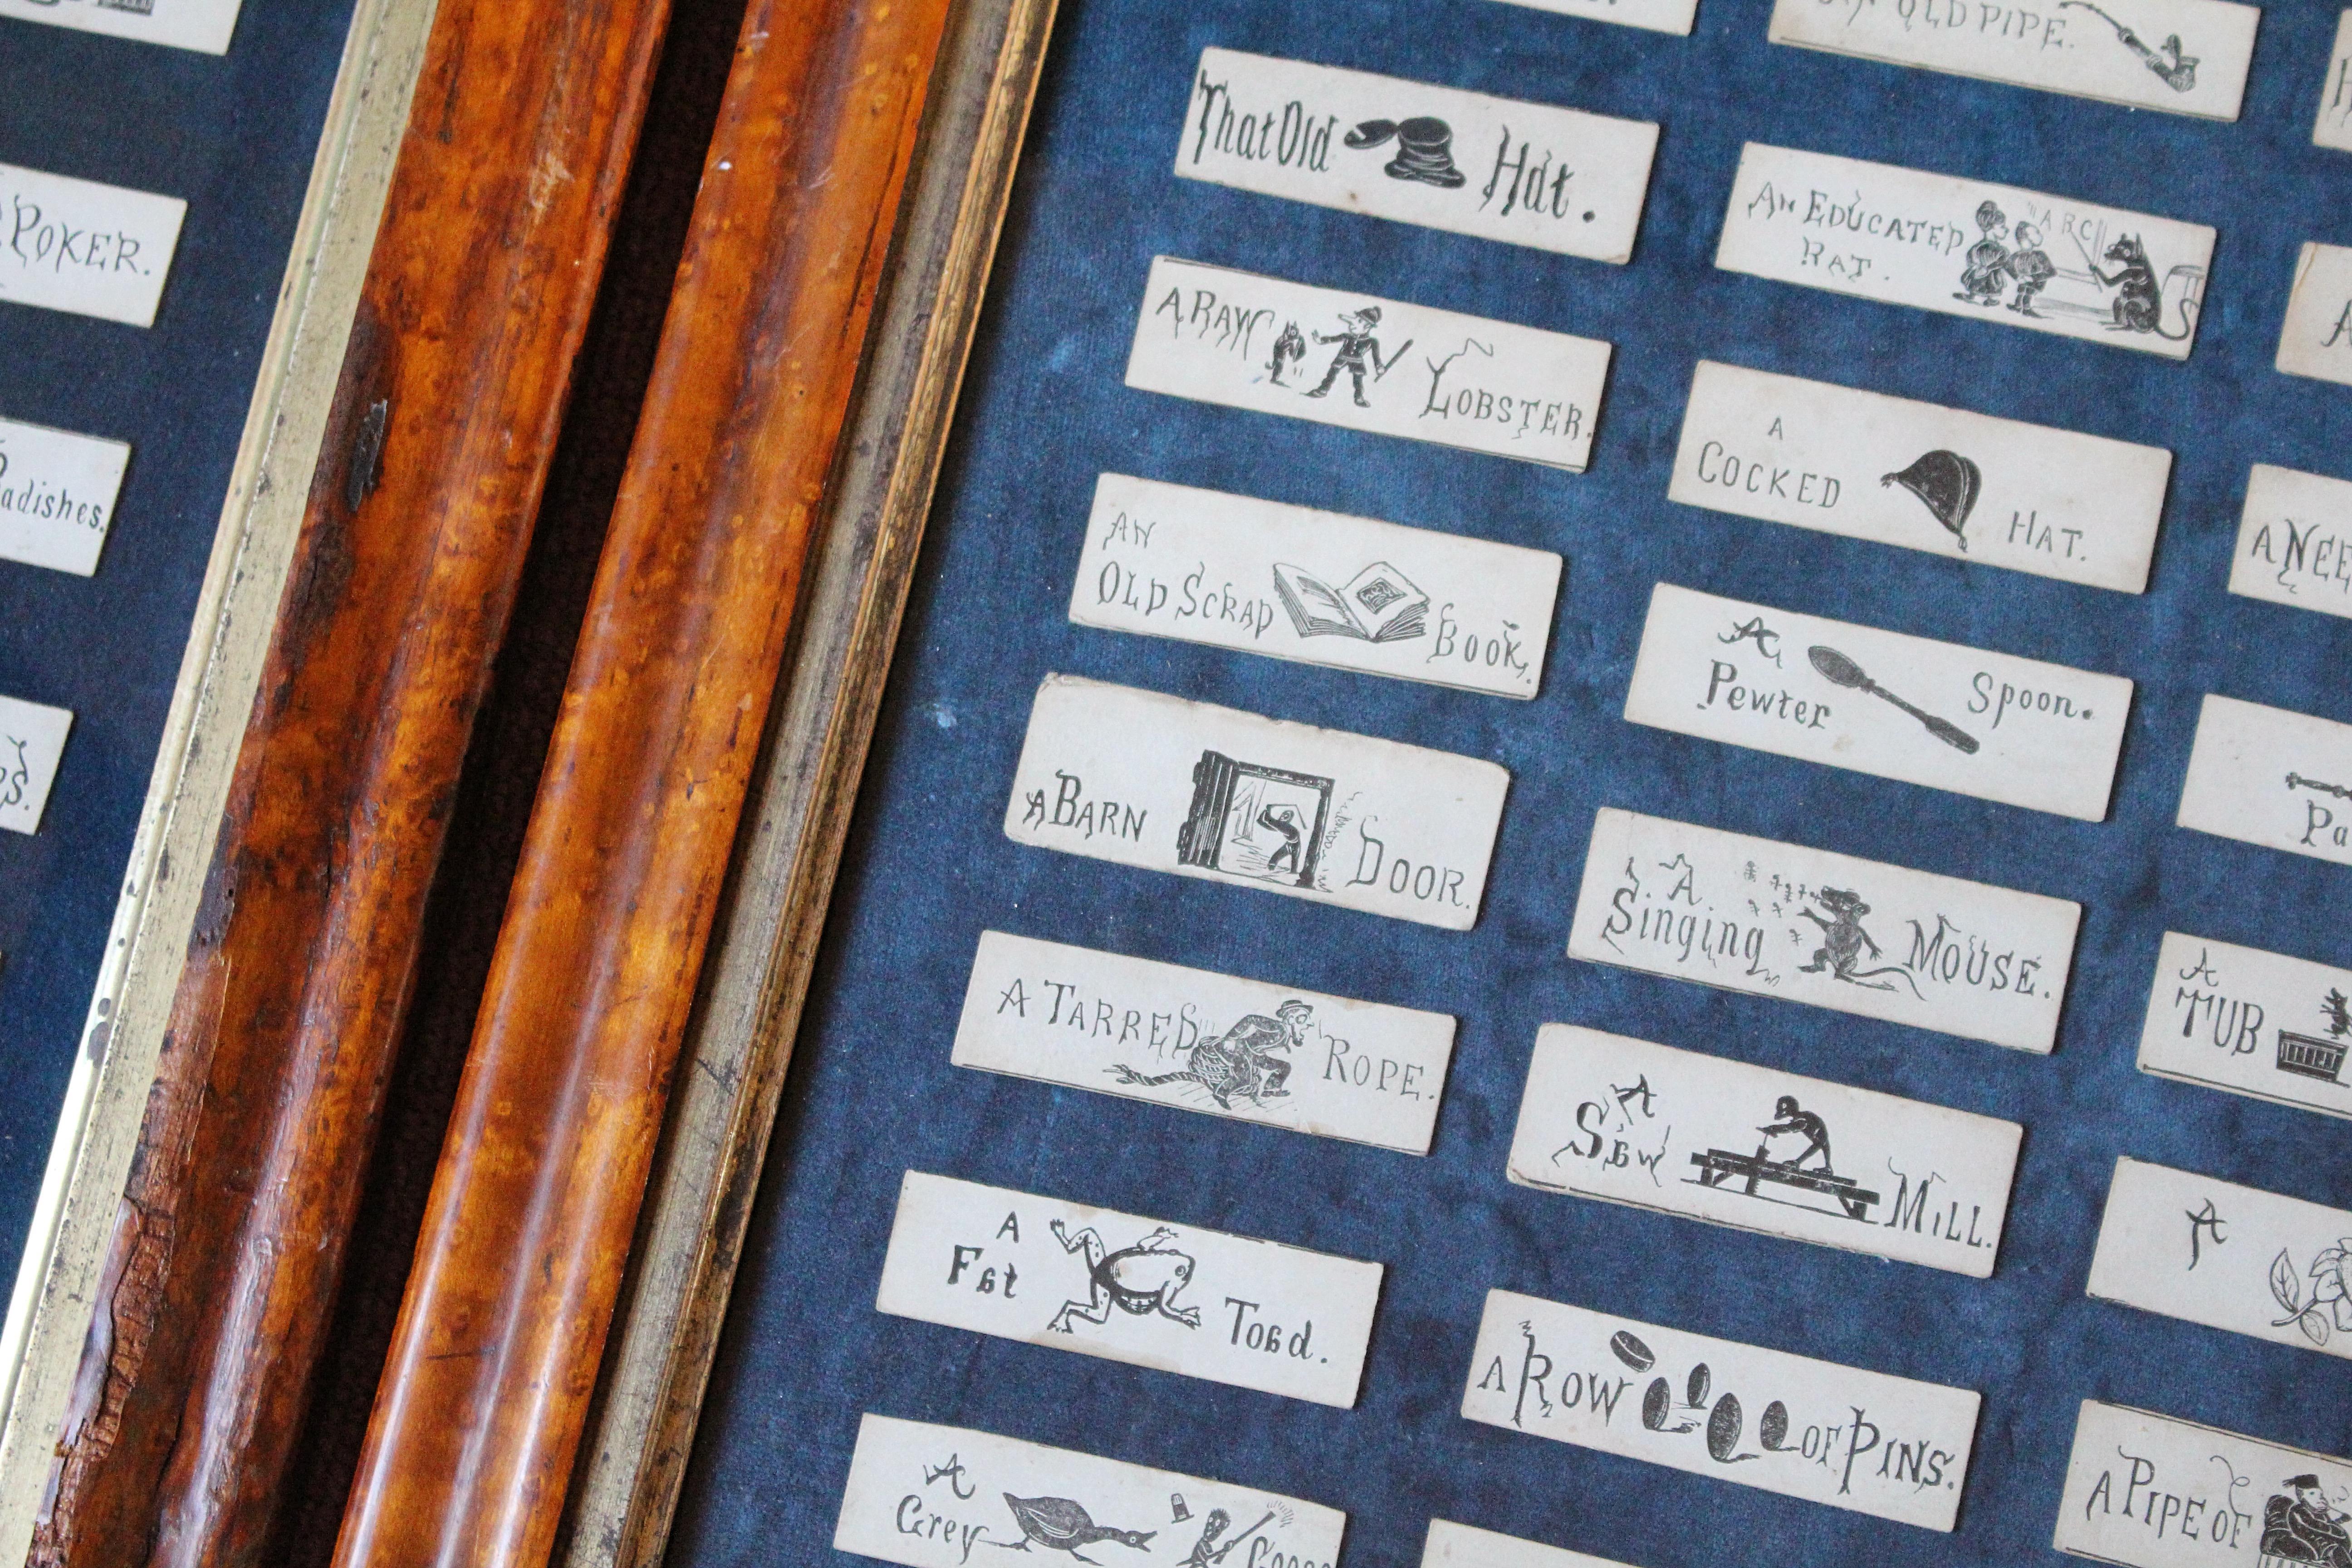 POKER.
adishes.
OLD PIPE.
That Old Hat.
AN EDUCATED
RAT.
A RAW LOBSTER.
A
COCKED HAT.
AN
OLD SCRAP BOOK.
A
Pewter Spoon.
A BARN DOOR.
A
Singing MOUSE.
A TARRED ROPE.
A
TUB
A
Saw MILL.
A
A
Fat Toad.
A ROW OF PINS.
A PIPE OF
A
Grey